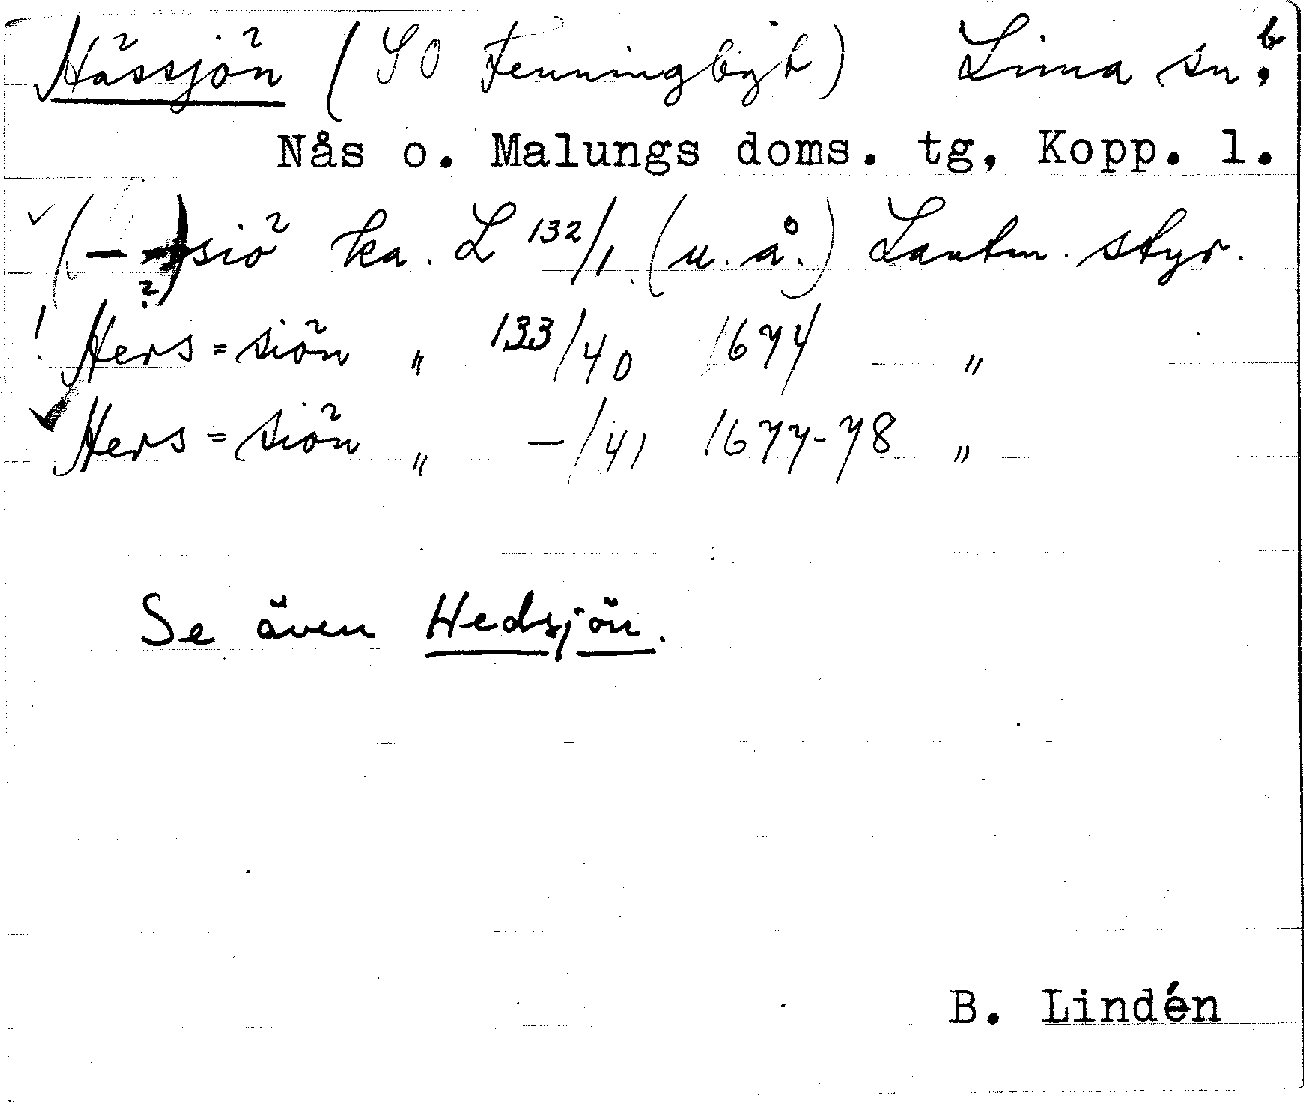 Hässjön (SO Tenningbyt) Lima sn. b
Nås o. Malungs doms. tg, Kopp. l.
(– -)siö ka. L 132/1 (u. å.) Lantm. styr.
?
! Hers=siön „ 133/40 1674 „
Hers=siön „ –/41 1677-78 „
Se även Hedsjön.
B. Lindén